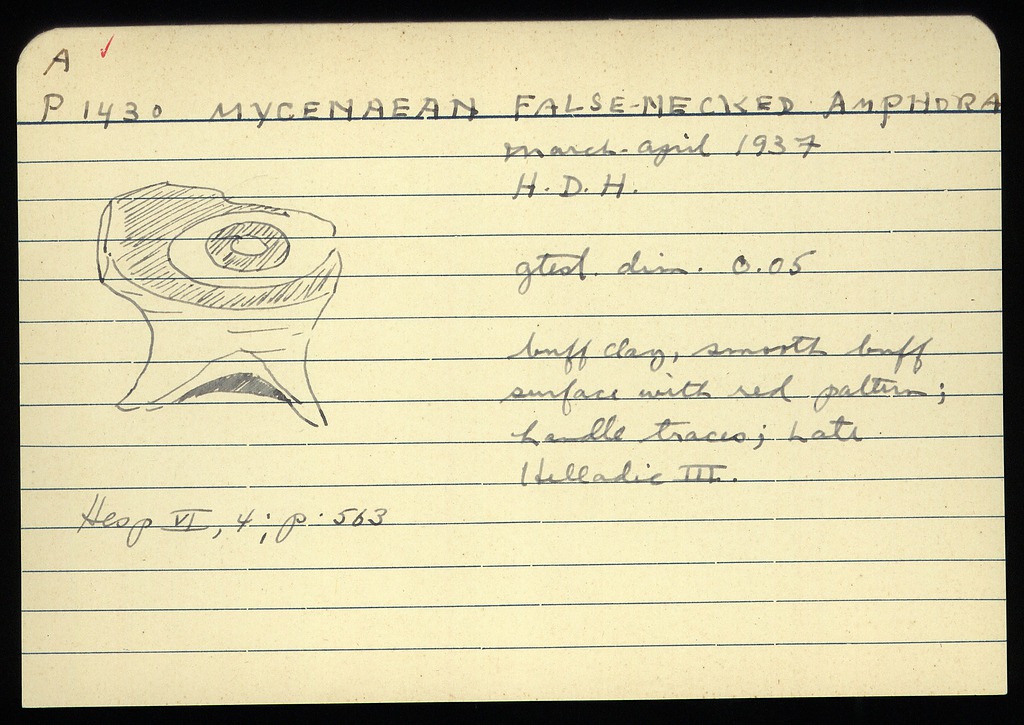 A
P 1430 MYCENAEAN FALSE-NECKED AMPHORA
march-april 1937
H. D. H.
gtest. dim. 0.05
buff clay, smooth buff
surface with red pattern;
handle traces; Late
Helladic III.
Hesp VI, 4; p. 563